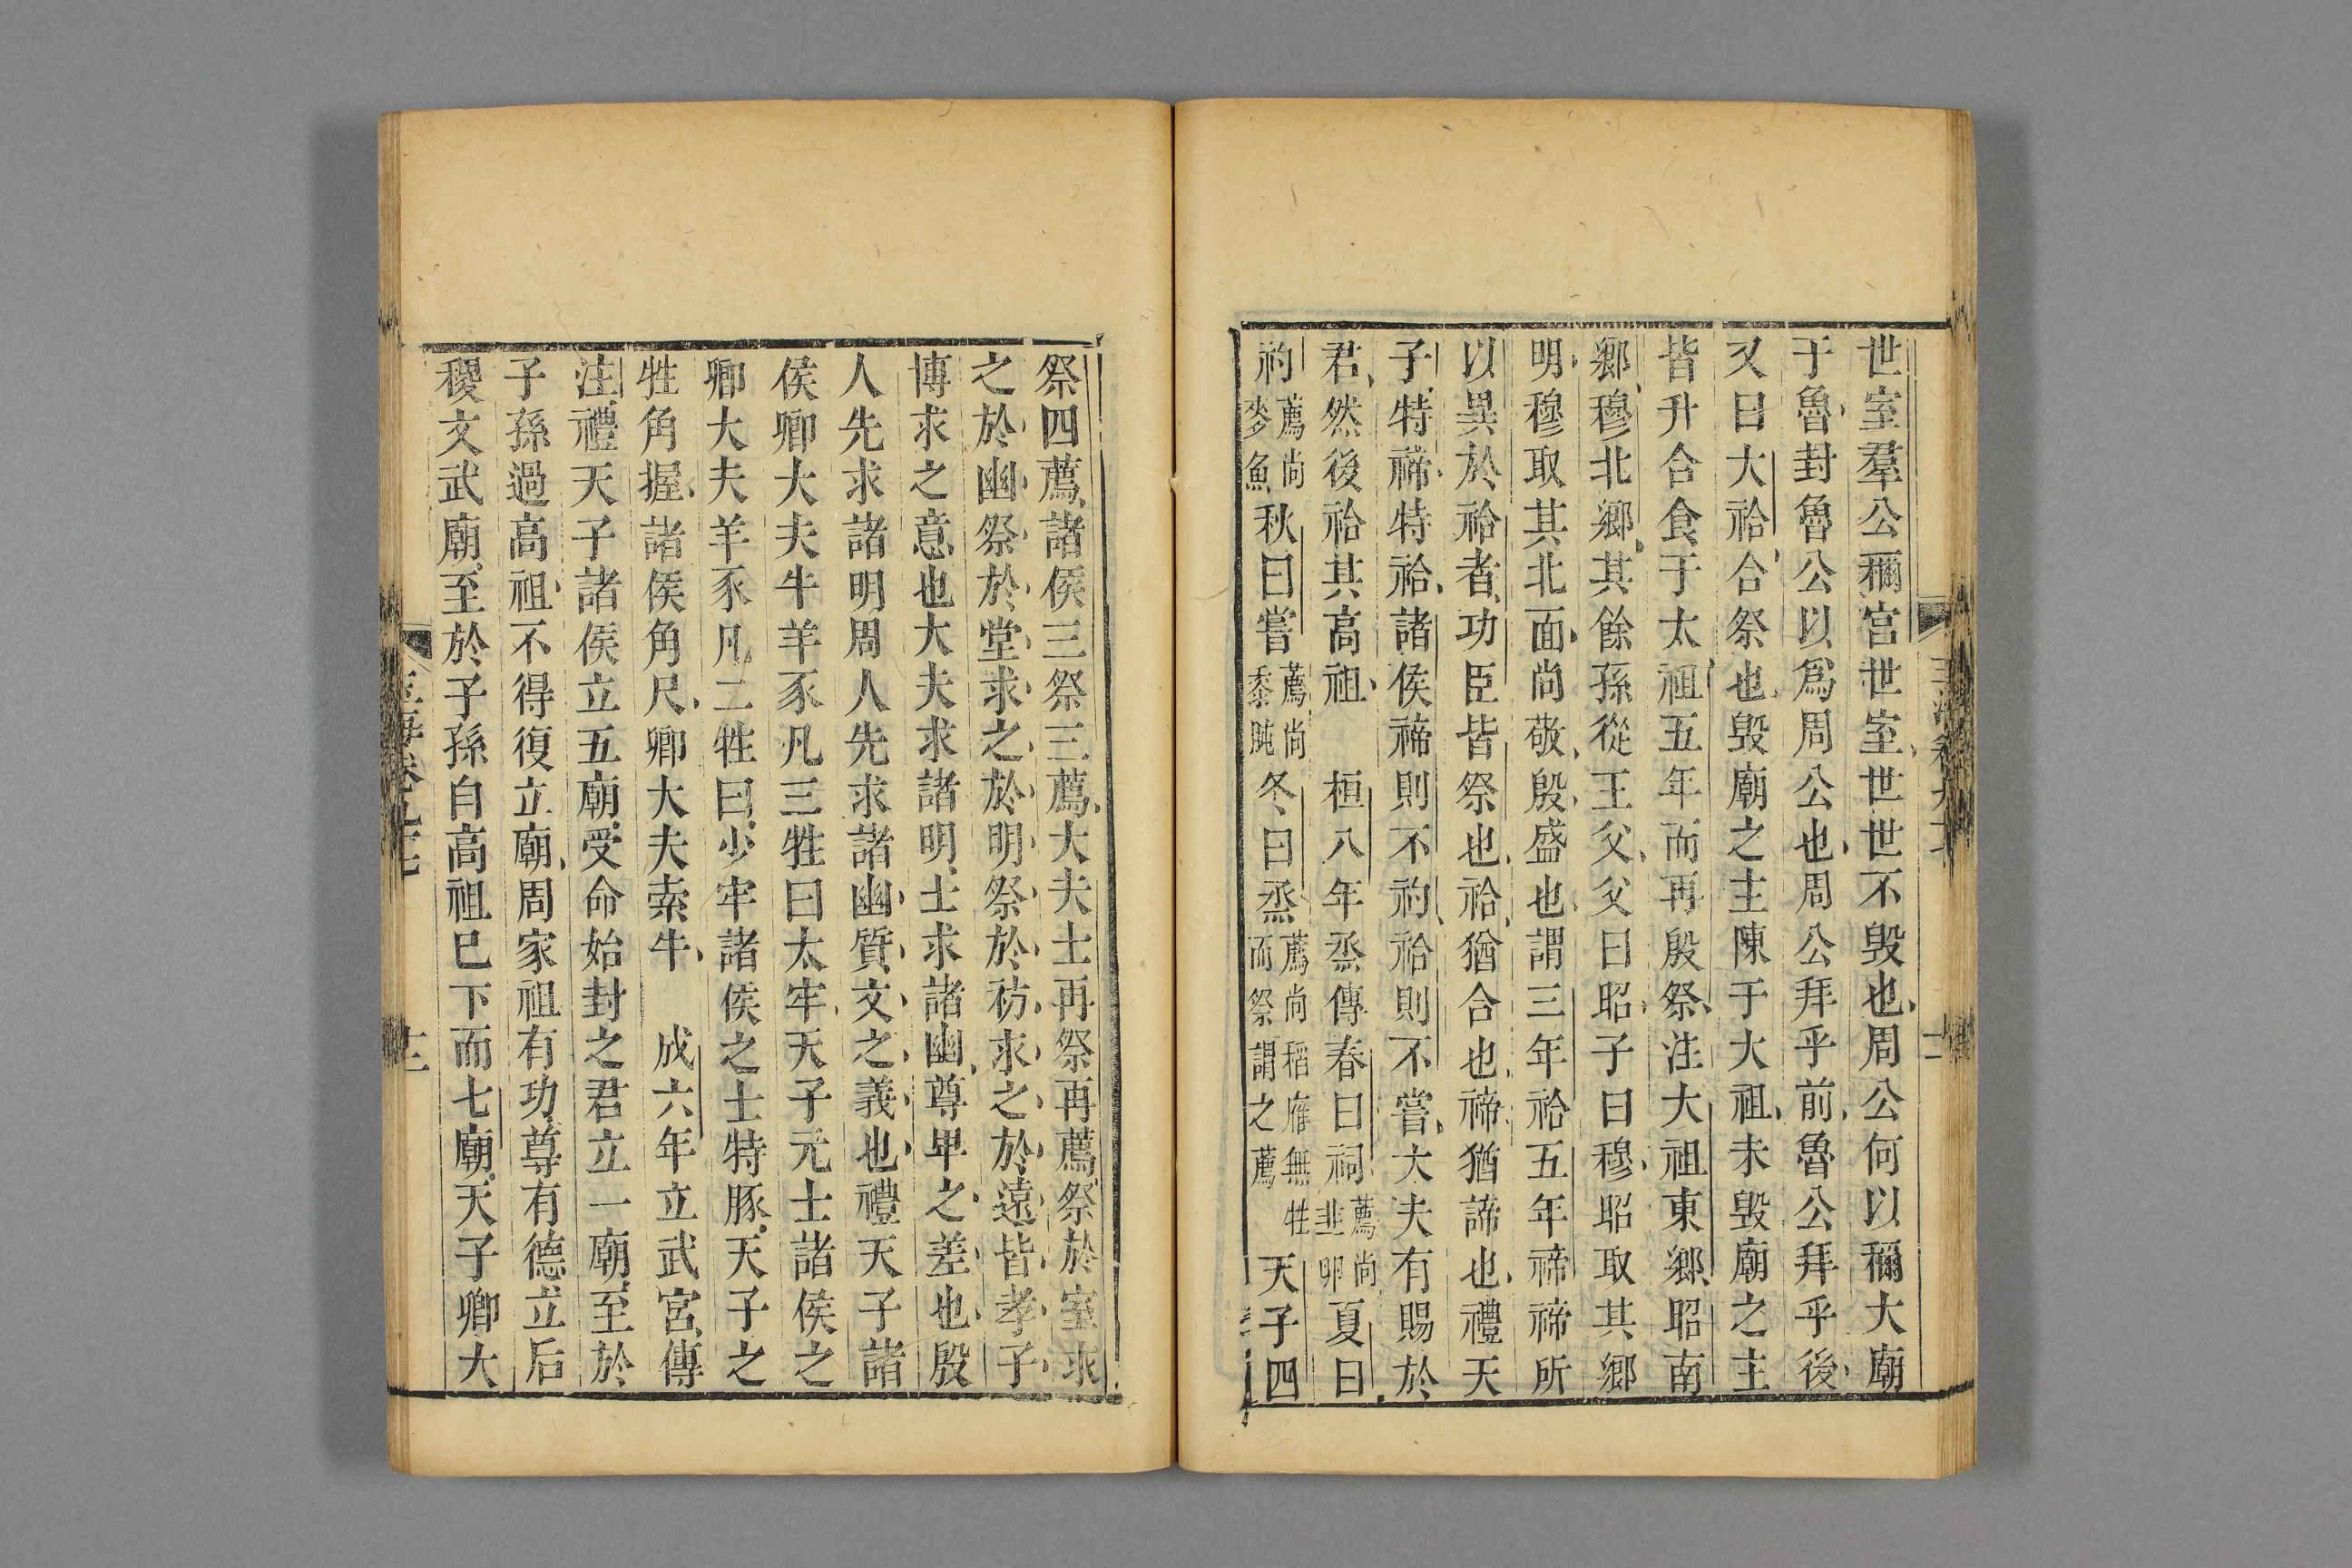 世室羣公稱宮世室世世不毀也周公何以稱大廟
于魯封魯公以爲周公也周公拜乎前魯公拜乎後
又曰大祫合祭也毀廟之主陳于大祖未毀廟之主
皆升合食于太祖五年而再殷祭注大祖東鄉昭南
鄉穆北鄉其餘孫從王父父曰昭子曰穆昭取其鄉
明穆取其北面尚敬殷盛也謂三年祫五年禘禘所
以異於祫者功臣皆祭也祫猶合也禘猶諦也禮天
子特禘特祫諸侯禘則不礿祫則不嘗大夫有賜於
君然後祫其高祖　桓八年烝傳春曰祠薦尚韭卵夏曰
礿薦尚麥魚秋曰嘗薦尚黍肫冬曰烝薦尚稻鴈無牲而祭謂之薦天子四
祭四薦諸侯三祭三薦大夫士再祭再薦祭於室求
之於幽祭於堂求之於明祭於祊求之於遠皆孝子
博求之意也大夫求諸明士求諸幽尊卑之差也殷
人先求諸明周人先求諸幽質文之義也禮天子諸
侯卿大夫牛羊豕凡三牲曰太牢天子元士諸侯之
卿大夫羊豕凡二牲曰少牢諸侯之士特豚天子之
牲角握諸侯角尺卿大夫索牛　成六年立武宮傳
注禮天子諸侯立五廟受命始封之君立一廟至於
子孫過高祖不得復立廟周家祖有功尊有德立后
稷文武廟至於子孫自高祖已下而七廟天子卿大